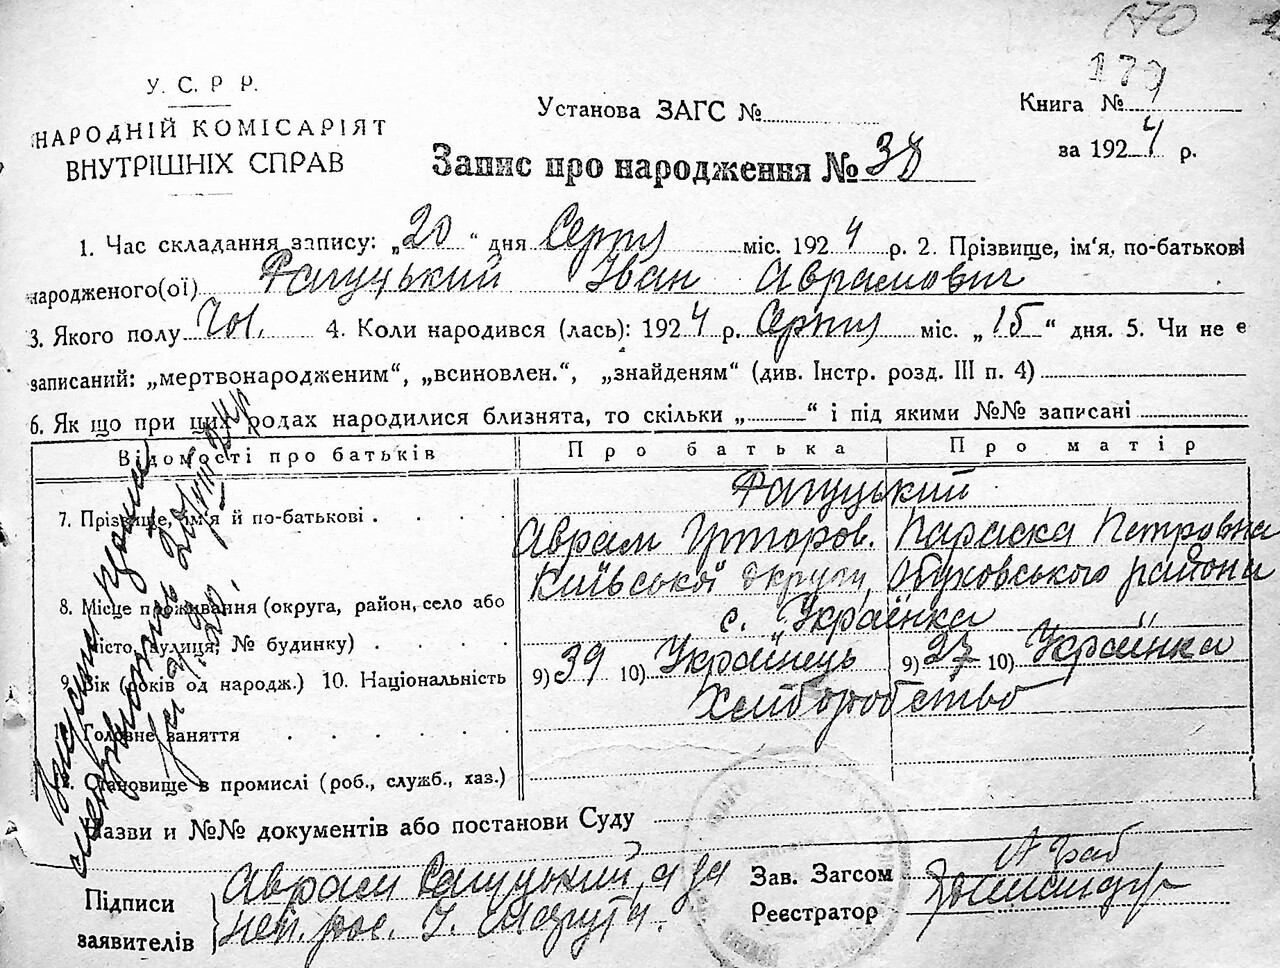 170
179
У. С. Р Р.
НАРОДНІЙ КОМІСАРІЯТ
ВНУТРІШНІХ СПРАВ
Установа ЗАГС №
Книга №
за 1924 р.
Запис про народження № 38
1. Час складання запису: „20“ дня Серпня міс. 1924 р. 2. Прізвище, ім'я, по-батькові
народженого(ої) Рагуцький Іван Аврамович
3. Якого полу Чол. 4. Коли народився (лась): 1924 р. Серпня міс. „15“ дня. 5. Чи не є
записаний: „мертвонародженим“, „всиновлен.“, „знайденям“ (див. Інстр. розд. III п. 4)
6. Як що при цих родах народилися близнята, то скільки „ “ і під якими №№ записані
Відомості про батьків Про батька Про матір
Рагуцький
7. Прізвище, ім'я й по-батькові
Аврам Григоров. Параска Петровна
Київської округи, Обуховського района
8. Місце проживання (округа, район, село або
с. Українка
місто, вулиця, № будинку)
9) 39 10) Українець 9) 27 10) Українка
9. Вік (років од народж.) 10. Національність
Хліборобство
Головне заняття
Становище в промислі (роб., служб., хаз.)
Назви и №№ документів або постанови Суду
Підписи
заявителів
Аврам Рагуцький, а за
неп. рос.
Зав. Загсом
Реєстратор